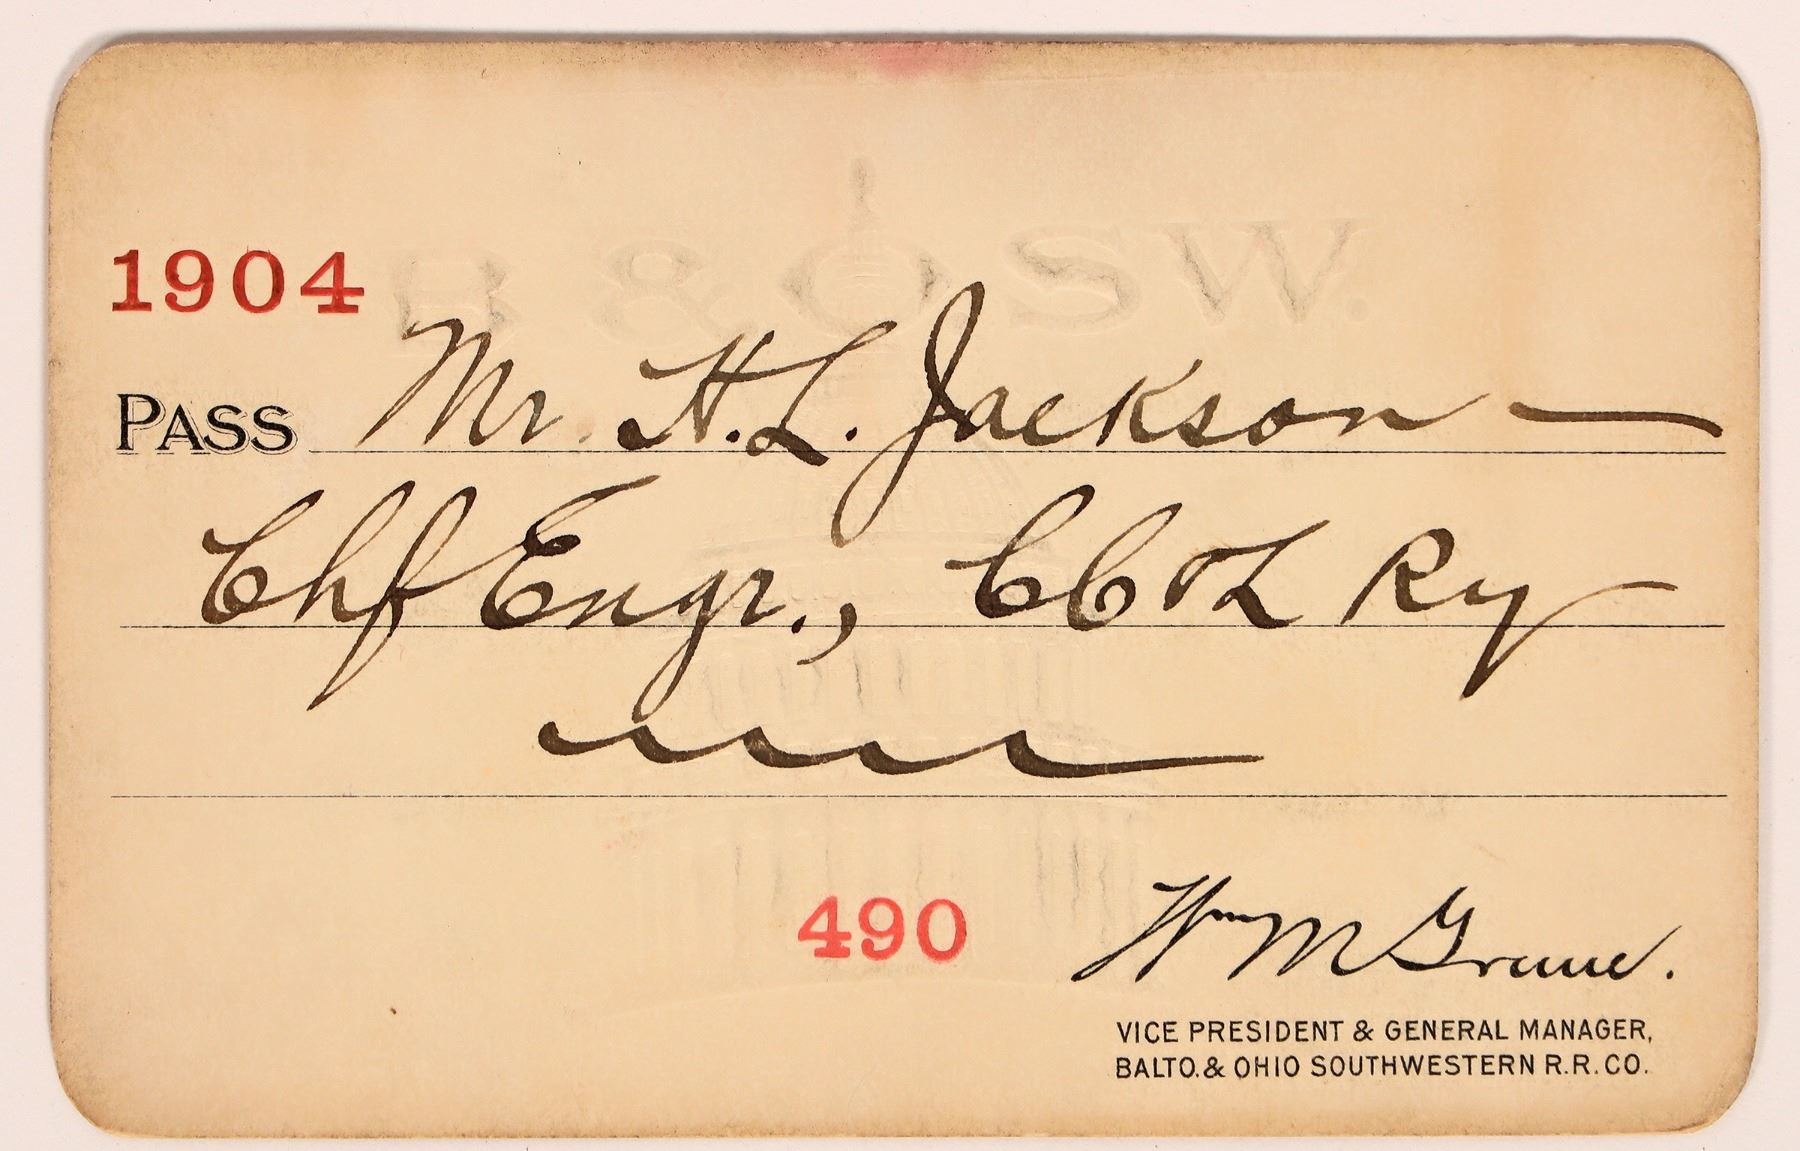 B & O SW.
1904
PASS Mr. H. L. Jackson —
Chf Engr., CC & L Ry
490
Wm M Greene.
VICE PRESIDENT & GENERAL MANAGER,
BALTO. & OHIO SOUTHWESTERN R.R. CO.